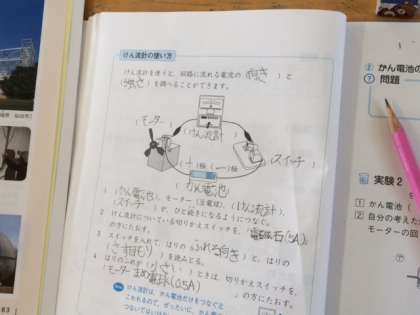 けん流計の使い方
けん流計を使うと、回路に流れる電流の（向き）と
（強さ）を調べることができます。
（モーター）
（けん流計）
（スイッチ）
（＋）極（ー）極
（かん電池）
1 （けん電池）、モーター（豆電球）、（けん流計）、
（スイッチ）が、ひと続きになるようにつなぐ。
2 けん流計についている切りかえスイッチを、「電磁石（5A）」
の方にたおす。
3 スイッチを入れて、はりの（ふれる向き）と、はりの
（さす目もり）を読みとる。
4 はりのふれが（小さい）ときは、切りかえスイッチを、
「モーターまめ電球（0.5A）」の方にたおす。
けん流計は、かん電池だけをつなぐと
こわれるので、ぜったいに、かん電
つないではいけない
② かん電池の
⑦ 問題
実験 2
1 かん電
2 自分の考えた
モーターの回
63